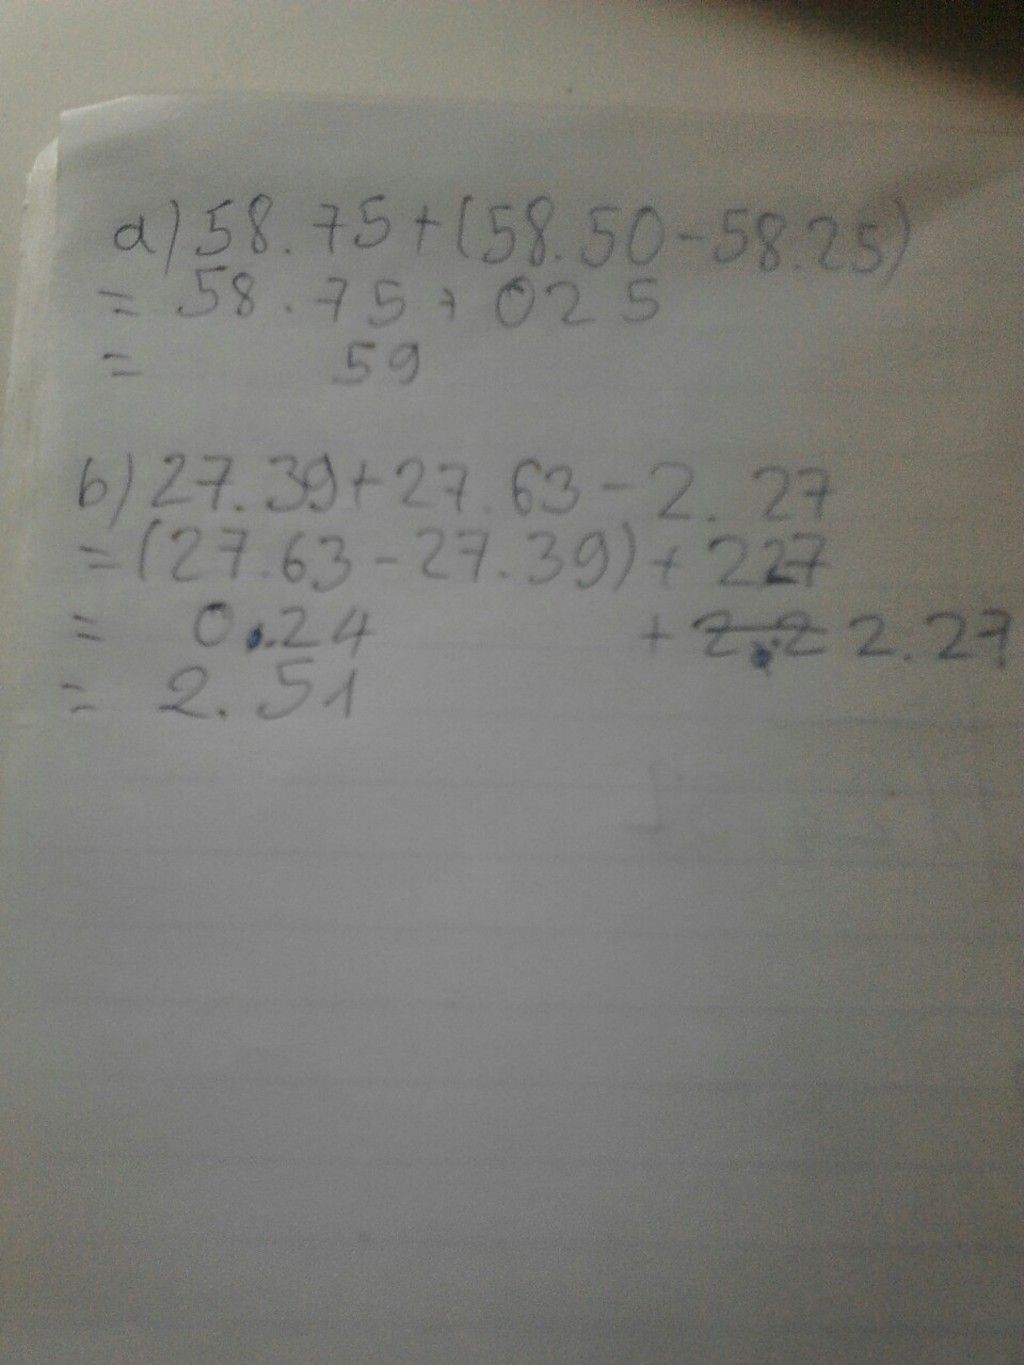 a) 58.75+(58.50-58.25)
= 58.75+ 025
= 59
b) 27.39+27.63-2.27
=(27.63-27.39)+227
= 0.24 + 2.2 2.27
= 2.51